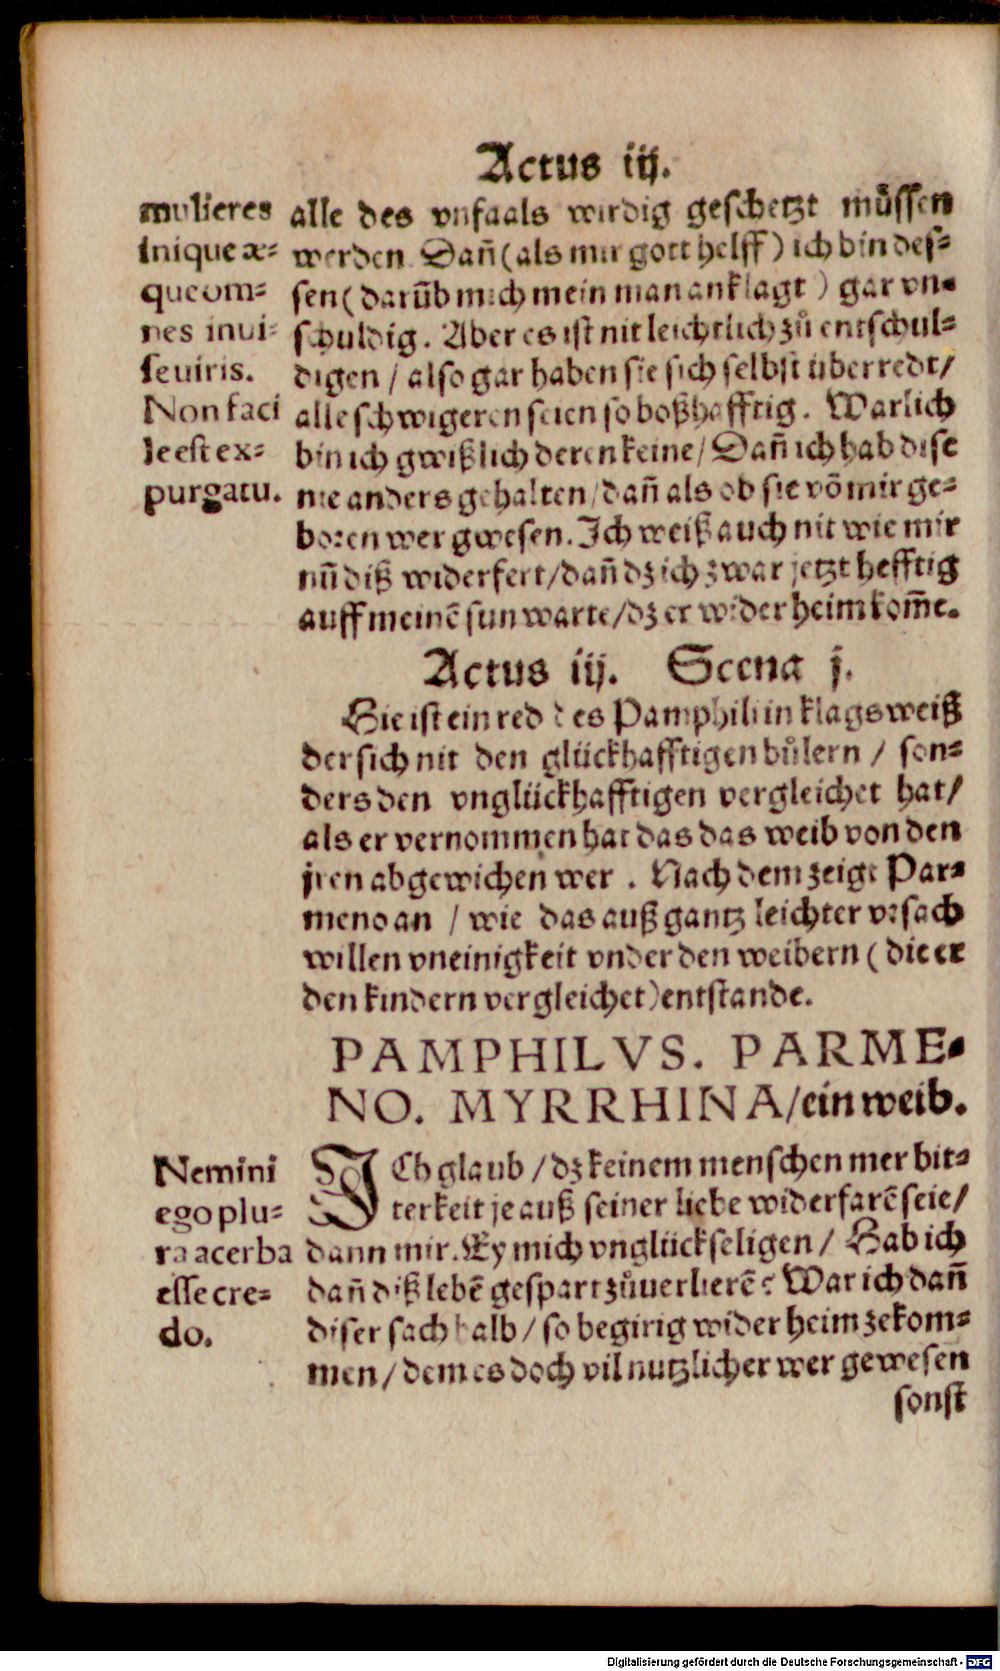 Actus iij.
mulieres
inique æ-
que om-
nes inui-
se uiris.
Non faci
le est ex-
purgatu.
alle des vnfaals wirdig geschetzt müssen
werden. Dañ (als mir gott helff) ich bin des-
sen (darüb mich mein man anklagt) gar vn-
schuldig. Aber es ist nit leichtlich zů entschul-
digen / also gar haben sie sich selbst überredt /
alle schwigeren seien so boßhafftig. Warlich
bin ich gwißlich deren keine / Dañ ich hab dise
nie anders gehalten / dañ als ob sie võ mir ge-
boren wer gwesen. Ich weiß auch nit wie mir
nũ diß widerfert / dañ dz ich zwar jetzt hefftig
auff meinẽ sun warte / dz er wider heim kom̃e.
Actus iij. Scena j.
Hie ist ein red des Pamphili in klags weiß
der sich nit den glückhafftigen bůlern / son-
ders den vnglückhafftigen vergleichet hat /
als er vernommen hat das das weib von den
jren abgewichen wer. Nach dem zeigt Par-
meno an / wie das auß gantz leichter vrsach
willen vneinigkeit vnder den weibern (die er
den kindern vergleichet) entstande.
PAMPHILVS. PARME-
NO. MYRRHINA / ein weib.
Nemini
ego plu-
ra acerba
esse cre-
do.
ICh glaub / dz keinem menschen mer bit-
terkeit je auß seiner liebe widerfarẽ seie /
dann mir. Ey mich vnglückseligen / Hab ich
dañ diß lebẽ gespart zůuerlierẽ? War ich dañ
diser sach halb / so begirig wider heim zekom-
men / dem es doch vil nutzlicher wer gewesen
sonst
Digitalisierung gefördert durch die Deutsche Forschungsgemeinschaft - DFG